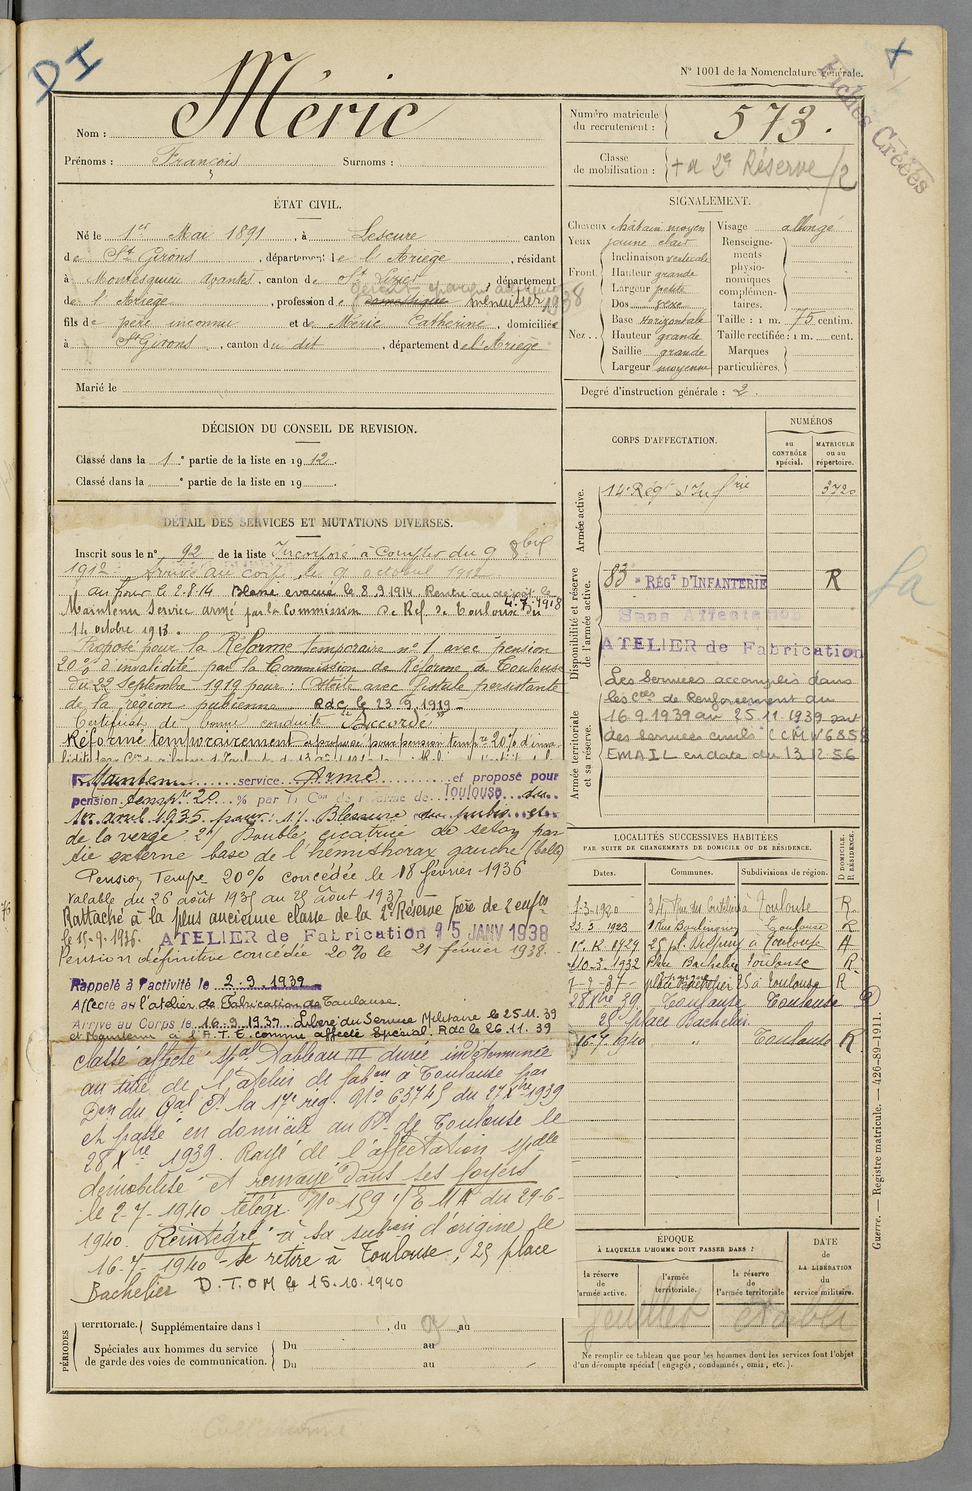 DI
N° 1001 de la Nomenclature générale.
Fiches Créées
Nom : Méric
Prénoms : François Surnoms :
Numéro matricule du recrutement : 573.
Classe de mobilisation : + a 2e Réserve /2
ÉTAT CIVIL.
Né le 1er Mai 1891, à Lescure canton
de St Girons, département de l'Ariège, résidant
à Montesquieu Avantès, canton de St Lizier département
de l'Ariège, profession de domestique menuisier 1938
fils de père inconnu et de Méric Catherine, domiciliée
à St Girons, canton du dit, département de l'Ariège
Marié le
SIGNALEMENT.
Cheveux châtain moyen
Yeux jaune clair
Front. Inclinaison verticale
Hauteur grande
Largeur petite
Nez.. Dos vexe
Base horizontale
Hauteur grande
Saillie grande
Largeur moyenne
Visage allongé
Renseignements physionomiques complémentaires.
Taille : 1 m. 75 centim.
Taille rectifiée : 1 m. cent.
Marques particulières.
Degré d'instruction générale : 2.
DÉCISION DU CONSEIL DE REVISION.
Classé dans la 1e partie de la liste en 1912.
Classé dans la e partie de la liste en 19
DÉTAIL DES SERVICES ET MUTATIONS DIVERSES.
Inscrit sous le n° 92 de la liste Incorporé à compter du 9 8bre
1912 Arrivé au corps le 9 octobre 1912
au front le 2-8-14 Blessé évacué le 8.9.1914 Rentré au dépôt le 4-7-1918
Maintenu Service armé par la Commission de Réf. de Toulouse du
14 octobre 1918.
Proposé pour la Réforme temporaire n° 1 avec pension
20% d'invalidité par la Commission de Réforme de Toulouse
du 22 Septembre 1919 pour : Ostéite avec fistule persistante
de la région pubienne RdC le 23.9.1919
Certificat de bonne conduite "Accordé"
Réformé temporairement et proposé pour pension tempre 20% d'inva
Maintenu service Armé et proposé pour
pension tempre 20 % par la Con de réforme de Toulouse du
1er avril 1935 pour : 1°/ Blessure du pubis et
de la verge 2°/ Double cicatrice de seton par
tie externe base de l'hemithorax gauche (balle)
Pension Tempe 20% concédée le 18 février 1936
valable du 26 août 1935 au 25 août 1937
Rattaché à la plus ancienne classe de la 2e Réserve père de 2 enfts
le 15-9-1936. ATELIER de Fabrication 15 JANV 1938
Pension définitive concédée 20% le 21 février 1938.
Rappelé à l'activité le 2.9.1939
Affecté au l'atelier de Fabrication de Toulouse.
Arrivé au Corps le 16.9.1939 Libéré du Service Militaire le 25.11.39
et Maintenu à l'A.T.E. comme affecté Spécial. Rdc le 26.11.39
Classé affecté spal Tableau III durée indéterminée
au titre de l'atelier de fabon à Toulouse par
Don du Gal Ct la 17e rég. N° 63745 du 27 Xbre 1939
et passé en domicile au Rt de Toulouse le
28 Xbre 1939. Rayé de l'affectation spalle
démobilisé et renvoyé dans ses foyers
le 2-7-1940 télégr. N° 159 1/EMA du 29-6-
1940. Réintégré à sa subon d'origine le
16-7-1940 - se retire à Toulouse, 25 place
Bachelier D.T.O.M le 15.10.1940
CORPS D'AFFECTATION.
NUMÉROS
au CONTRÔLE spécial.
MATRICULE ou au répertoire.
Armée active.
14e Régt d'Infrie 3720
Disponibilité et réserve de l'armée active.
83e RÉGT D'INFANTERIE R
Sans Affectation
ATELIER de Fabrication
Armée territoriale et sa réserve.
Les Services accomplis dans
les Cies de Renforcement du
16.9.1939 au 25.11.1939 sont
des services civils CCM N° 6858
EMAIL en date du 13.12.56
LOCALITÉS SUCCESSIVES HABITÉES
PAR SUITE DE CHANGEMENTS DE DOMICILE OU DE RÉSIDENCE.
Dates. Communes. Subdivisions de région. D DOMICILE. R RÉSIDENCE.
3-1920 34, Rue des à Toulouse R
23.5 1923 Toulouse R
1929 25 pl. à Toulouse
10-3-1932 Place Bachelier Toulouse R
1-2-37- place Bachelier 25 à Toulouse R
28 Xbre 39 Toulouse Toulouse D
25 place Bachelier
16-7-1940 " Toulouse R
ÉPOQUE
À LAQUELLE L'HOMME DOIT PASSER DANS :
la réserve de l'armée active.
l'armée territoriale.
la réserve de l'armée territoriale
DATE de LA LIBÉRATION du service militaire.
feuillet
Ne remplir ce tableau que pour les hommes dont les services font l'objet
d'un décompte spécial (engagés, condamnés, omis, etc.).
PÉRIODES
territoriale. Supplémentaire dans l , du au
Spéciales aux hommes du service
de garde des voies de communication.
Du au
Du au
Guerre. — Registre matricule. — 426-89-1911.